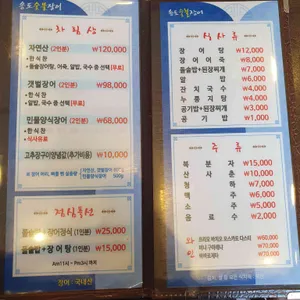 송도숯불장어
화림상
자연산 (2인분) ₩120,000
• 한 식 찬
• 돌솥장어탕, 어죽, 알밥, 국수 중 선택 [무료]
갯벌장어 (2인분) ₩98,000
• 한 식 찬
민물양식장어 (2인분) ₩68,000
• 한 식 찬
• 식사유료
고추장구이양념값 (추가비용) ₩10,000
점심특선
장어정식 (1인분) ₩25,000
돌솥밥+장어탕 (1인분) ₩15,000
Am11시 ~ Pm3시까지
장어 : 국내산
송도숯불장어
식사류
장어탕 ₩12,000
장어어죽 ₩8,000
돌솥밥+된장찌개 ₩7,000
알밥 ₩7,000
잔치국수 ₩4,000
누룽지탕 ₩4,000
공기밥+된장찌개 ₩3,000
공기밥 ₩1,000
주류
복분자 ₩15,000
산사춘 ₩10,000
청하 ₩7,000
맥주 ₩5,000
소주 ₩5,000
음료수 ₩2,000
와인
₩60,000
₩70,000
₩70,000